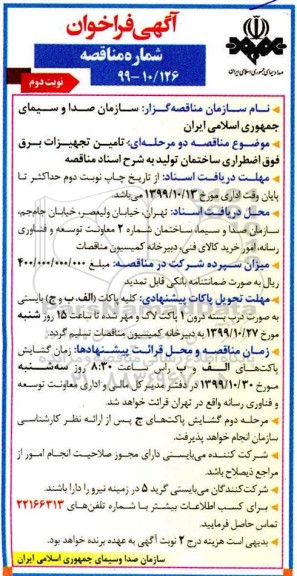 آگهی فراخوان
شماره مناقصه
۹۹-۱۰/۱۲۶
نوبت دوم
صدا و سیمای جمهوری اسلامی ایران
نـام سـازمان مناقصه‌گـزار: سـازمان صـدا و سـیمای
جمهوری اسلامی ایران
موضوع مناقصه دو مرحله‌ای: تامین تجهیزات برق
فوق اضطراری ساختمان تولید به شرح اسناد مناقصه
مهلـت دریافـت اسـناد: از تاریخ چاپ نوبت دوم حداکثر تا
پایان وقت اداری مورخ ۱۳۹۹/۱۰/۱۳ می‌باشد.
محـل دریافـت اسـناد: تهران، خیابان ولیعصر، خیابان جام‌جم،
سازمان صدا و سیما، ساختمان شماره ۲ معاونت توسعه و فناوری
رسانه، امور خرید کالای فنی، دبیرخانه کمیسیون مناقصات
میزان سـپرده شـرکت در مناقصـه: مبلغ ۴۰۰/۰۰۰/۰۰۰/۰۰۰
ریال به صورت ضمانتنامه بانکی قابل تمدید
مهلت تحویل پاکات پیشنهادی: کلیه پاکات (الف، ب و ج) بایستی
به صورت دربسته درون ۱ پاکت لاک و مهر شده تا ساعت ۱۵ روز شنبه
مورخ ۱۳۹۹/۱۰/۲۷ به دبیرخانه کمیسیون مناقصات تسلیم گردد.
زمـان مناقصـه و محـل قرائـت پیشـنهادها: زمان گشایش
پاکت‌های الـف و ب راس سـاعت ۸:۳۰ روز سه‌شـنبه
مورخ ۱۳۹۹/۱۰/۳۰ در دفتر مدیرکل مالی و اداری معاونت توسعه
و فناوری رسانه واقع در تهران قرائت خواهد شد.
مرحله دوم گشایش پاکت‌های ج پس از ارائه نظر کارشناسی
سازمان انجام خواهد پذیرفت.
شـرکت کننده می‌بایستی دارای مجوز صلاحیت انجام امور از
مراجع ذیصلاح باشد.
شرکت‌کنندگان می‌بایستی گرید ۵ در زمینه نیرو را دارا باشند.
برای کسب اطلاعات بیشتر با شـماره تلفن‌های ۲۲۱۶۶۳۱۳
تماس حاصل فرمایید.
بدیهی است هزینه درج ۲ نوبت آگهی به عهده برنده خواهد بود.
سازمان صدا وسیمای جمهوری اسلامی ایران